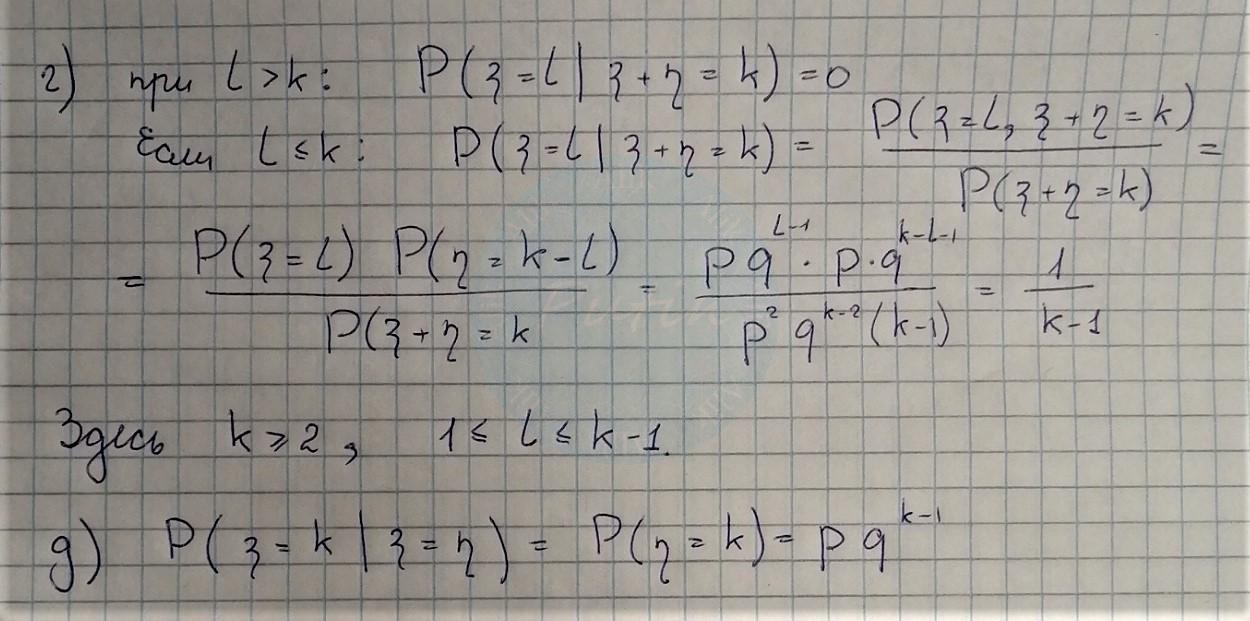 г) при l > k: P(ξ = l | ξ + η = k) = 0
Если l ≤ k: P(ξ = l | ξ + η = k) = P(ξ = l, ξ + η = k) / P(ξ + η = k) =
= P(ξ = l) P(η = k - l) / P(ξ + η = k = p q^{l-1} · p · q^{k-l-1} / p^2 q^{k-2} (k-1) = 1 / k-1
Здесь k ≥ 2, 1 ≤ l ≤ k - 1.
д) P(ξ = k | ξ = η) = P(η = k) = p q^{k-1}